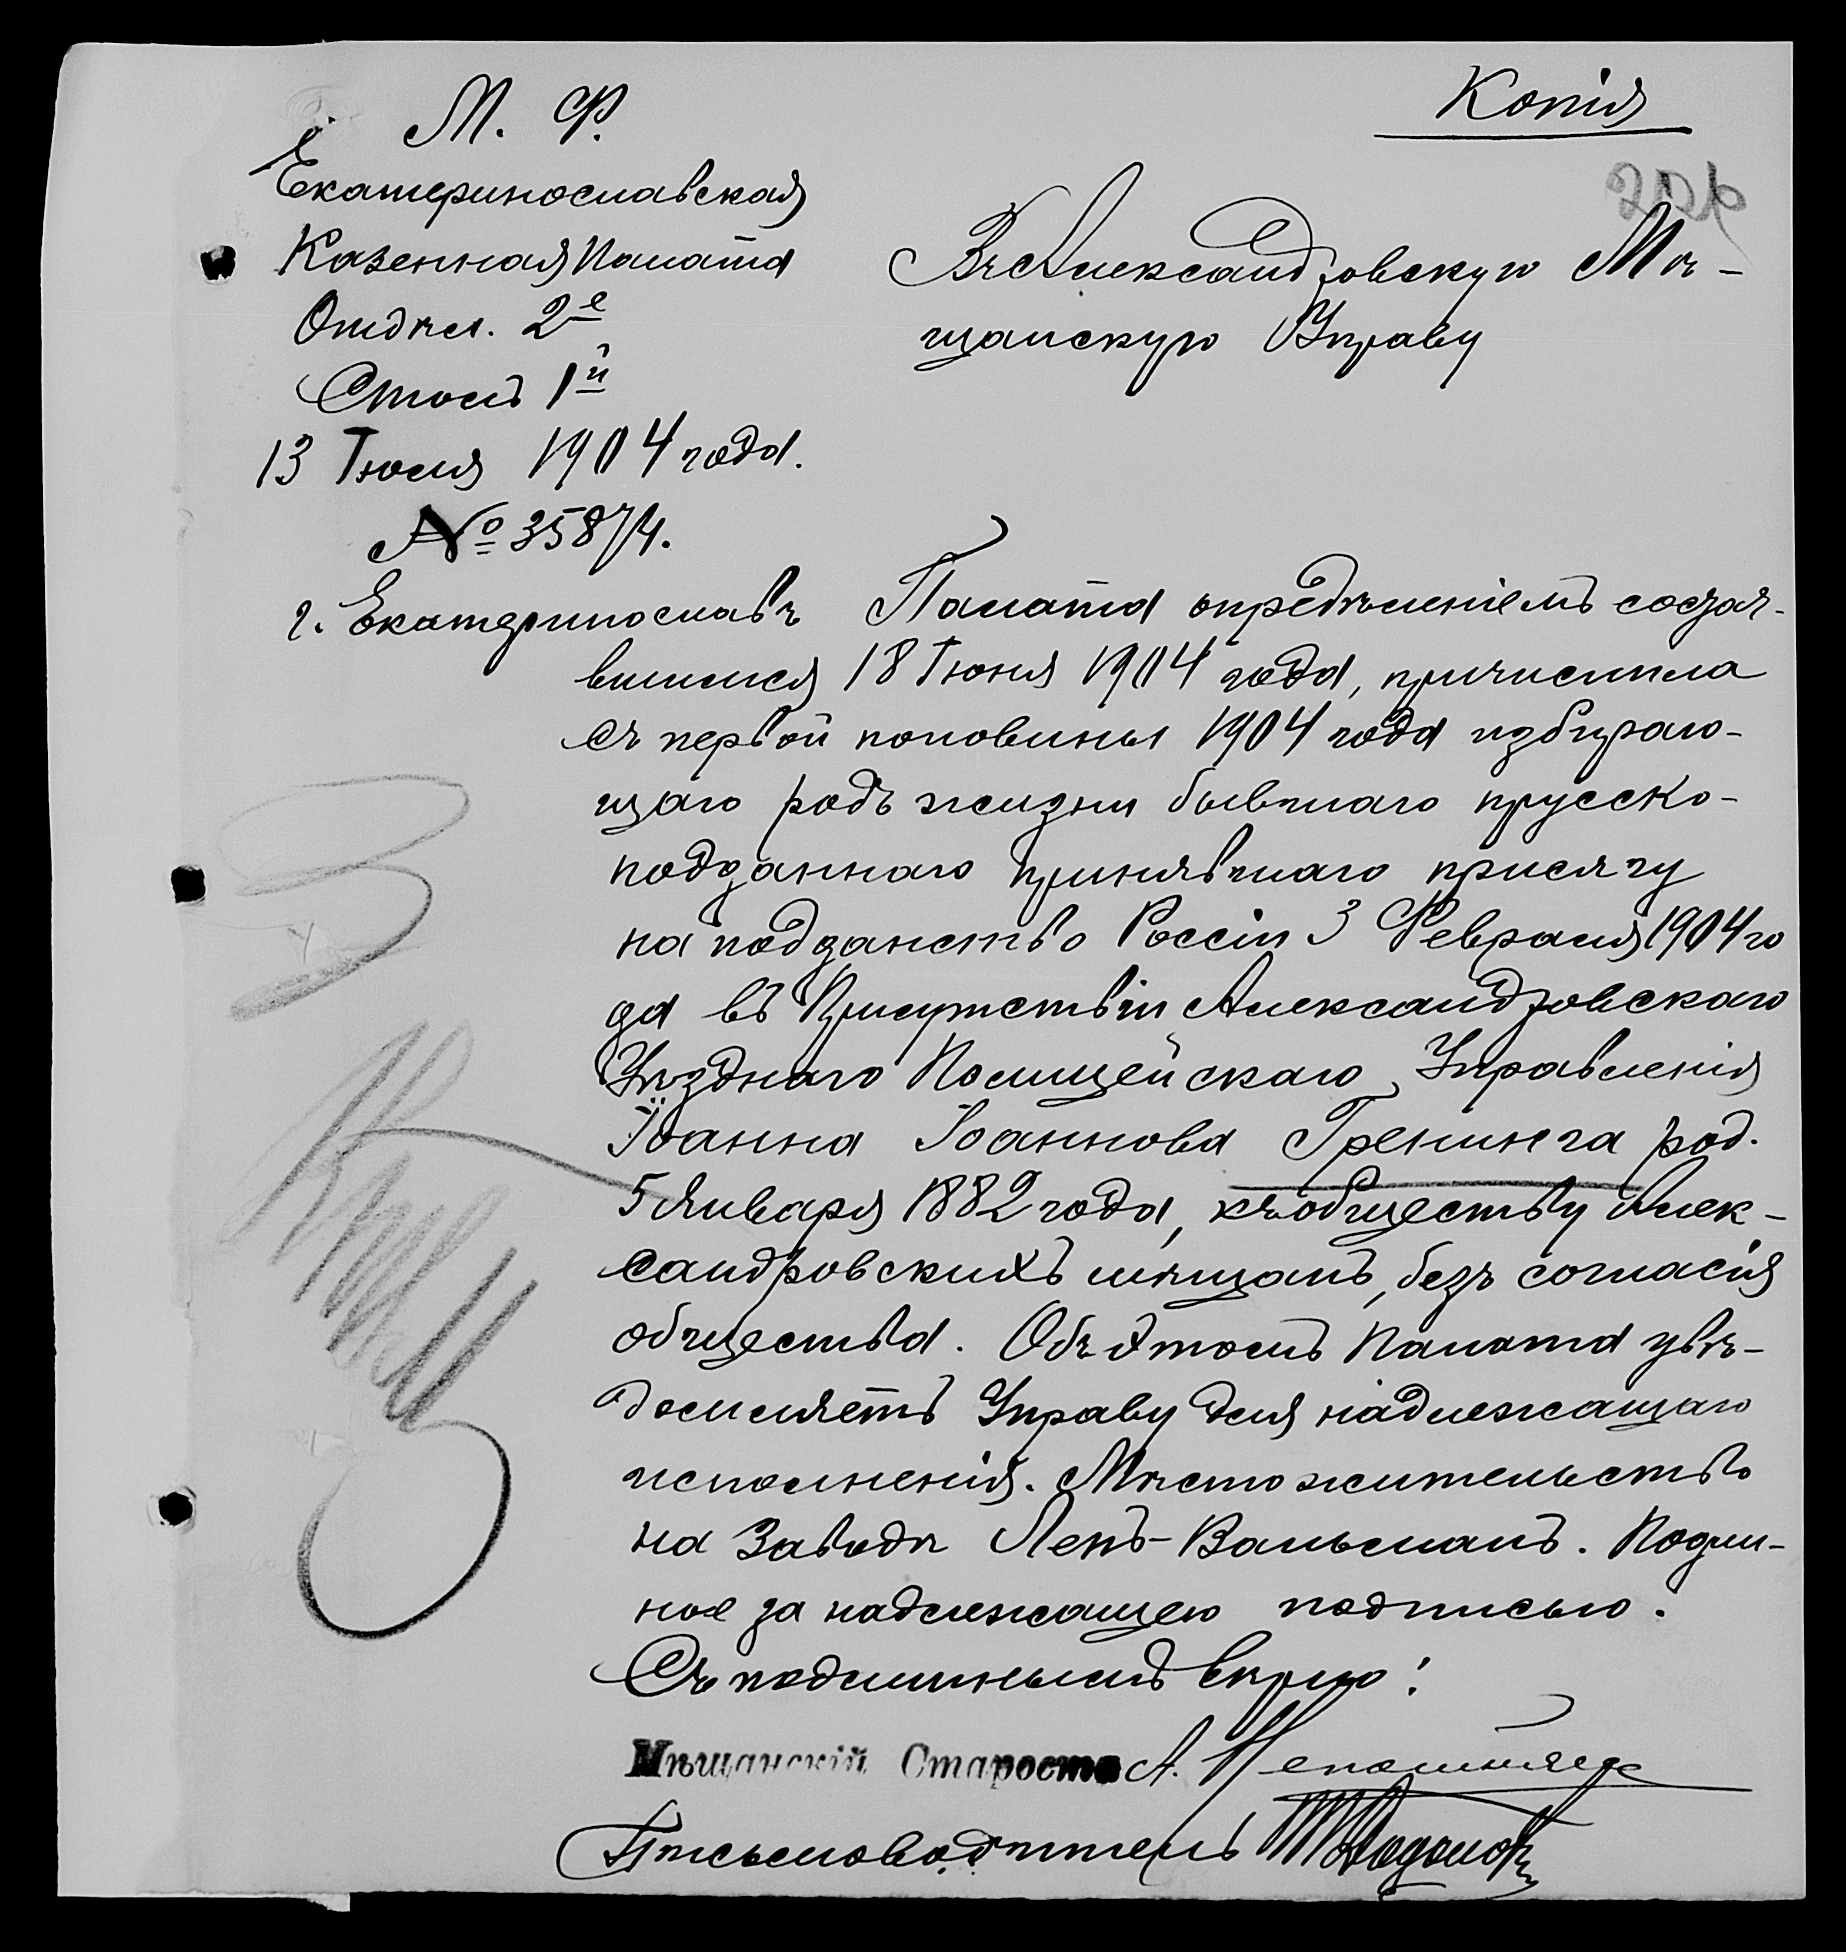 Копія
М. Ф.
Екатеринославская
Казенная Палата
Отдѣл. 2е
Столъ 1й
13 Іюля 1904 года.
№ 35874.
г. Екатеринославъ
Въ Александровскую Мѣ-
щанскую Управу
Палата опредѣленіемъ состоя-
вшимся 18 Іюня 1904 года, причислила
съ первой половины 1904 года избираю-
щаго родъ жизни бывшаго прусско-
подданнаго принявшаго присягу
на подданство Россіи 3 Февраля 1904 го
да въ Присутствіи Александровскаго
Уѣзднаго Полицейскаго Управленія
Іоанна Іоаннова Гренинга род.
5 Января 1882 года, къ обществу Алек-
сандровскихъ мѣщанъ, безъ согласія
общества. Объ этомъ Палата увѣ-
домляетъ Управу для надлежащаго
исполненія. Мѣсто жительство
на Заводѣ Лепъ-Вальманъ. Подли-
ное за надлежащею подписью.
Съ подлиннымъ вѣрно:
Мѣщанскій Староста А.
Письмоводитель